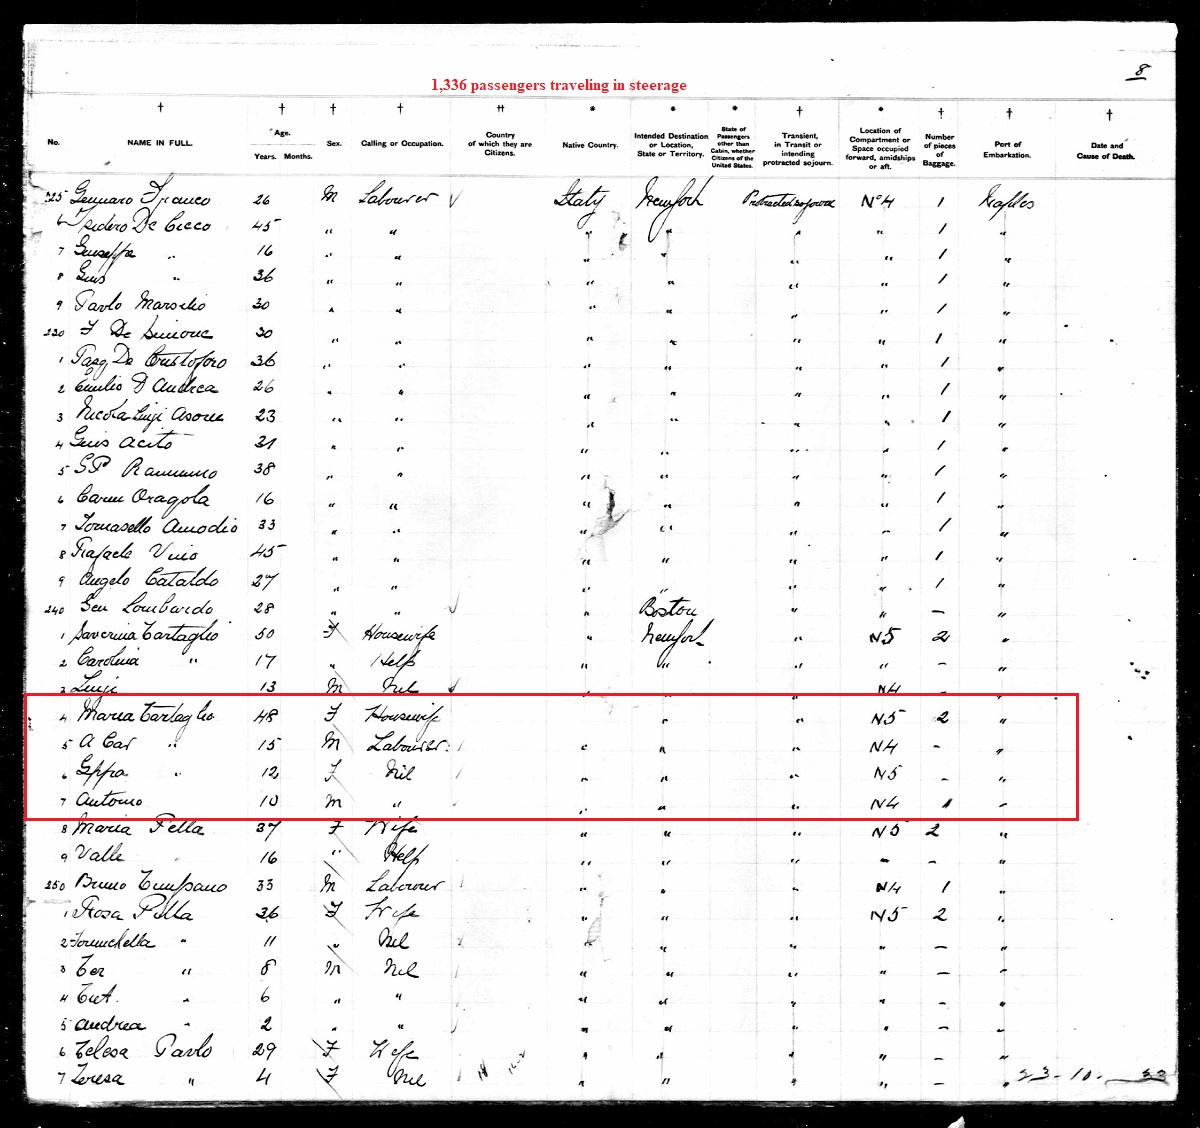 8
1,336 passengers traveling in steerage
No. NAME IN FULL. Age. Years. Months. Sex. Calling or Occupation. Country of which they are Citizens. Native Country. Intended Destination or Location, State or Territory. State of Passengers other than Cabin, whether Citizens of the United States. Transient, in Transit or intending protracted sojourn. Location of Compartment or Space occupied forward, amidships or aft. Number of pieces of Baggage. Port of Embarkation. Date and Cause of Death.
225 Gennaro Franco 26 M Labourer Italy New York Protracted sojourn No 4 1 Naples
6 Isidoro De Cicco 45 " " " " " " 1 "
7 Giuseppa " 16 " " " " " " 1 "
8 Gius " 36 " " " " " " 1 "
9 Paolo Marsilio 30 " " " " " " 1 "
230 F De Simone 30 " " " " " " 1 "
1 Pasq De Cristoforo 36 " " " " " " 1 "
2 Emilio D Andrea 26 " " " " " " 1 "
3 Nicola Luigi 23 " " " " " " 1 "
4 Gius Acito 31 " " " " " " 1 "
5 38 " " " " " " 1 "
6 Carm Oragola 16 " " " " " " 1 "
7 Tomasello Amodio 33 " " " " " " 1 "
8 Rafaele 45 " " " " " " 1 "
9 Angelo Cataldo 27 " " " " " " 1 "
240 Gen Lombardo 28 " " " Boston " " - "
1 Saverina Tartaglio 50 F Housewife " New York " N5 2 "
2 Carolina " 17 " Help " " " " - "
3 Luigi 13 M Nil " " " N4 - "
4 Maria Tartaglio 48 F Housewife " " N5 2 "
5 A Car " 15 M Labourer " " " N4 - "
6 Gppa " 12 F Nil " " " N5 - "
7 Antonio 10 M " " " " N4 1 "
8 Maria Pella 37 F Wife " " " N5 2 "
9 Valle 16 " Help " " " - - "
250 Bruno 33 M Labourer " " " N4 1 "
1 Rosa Pella 36 F Wife " " " N5 2 "
2 " 11 " Nil " " " " - "
3 Ter " 8 M Nil " " " " - "
4 " 6 " " " " " " - "
5 Andrea " 2 " " " " " " - "
6 Telesa Paolo 29 F Wife " " " " - "
7 Teresa " 4 F Nil " " " " - "
23-10-